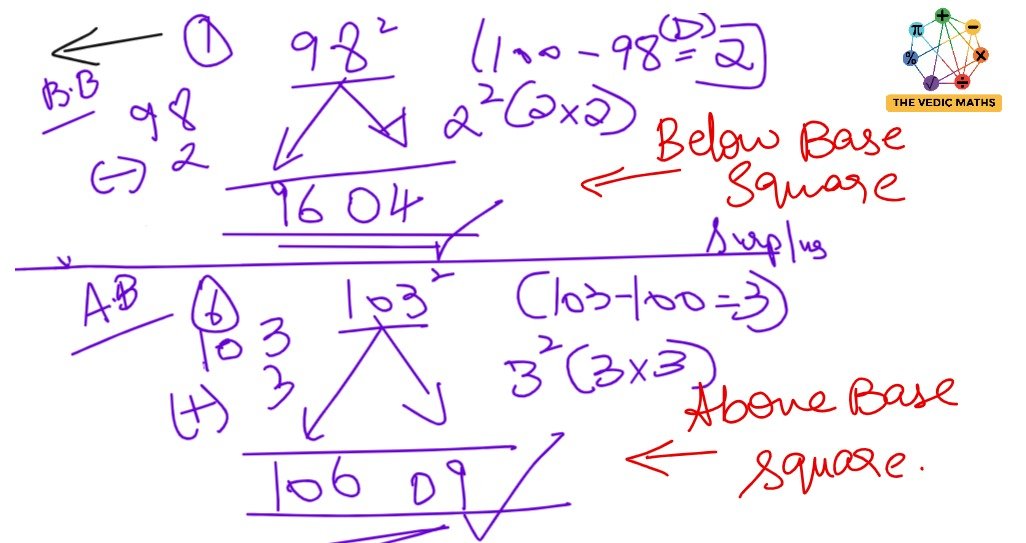 ① 98² (100 - 98 (D) = 2
B.B
98
(-) 2
2² (2x2)
Below Base
Square
96 04
Surplus
A.B ⑥ 103² (103-100=3)
103
(+) 3
3² (3x3)
Above Base
square.
106 09
π + - % × √ ÷
THE VEDIC MATHS